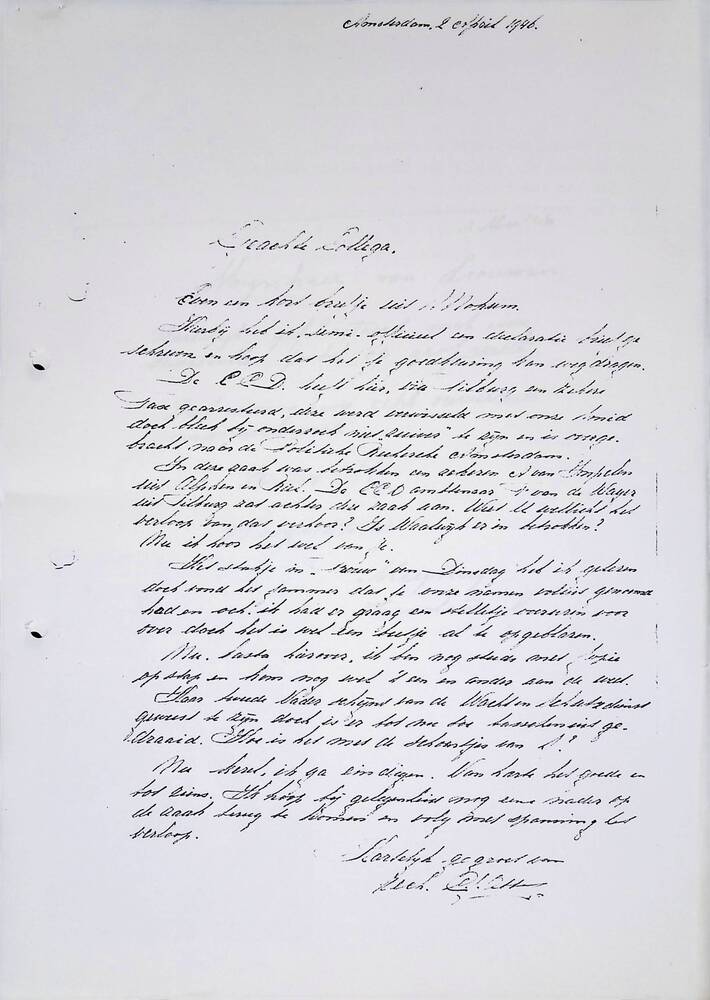 Amsterdam, 2 April 1946.
Geachte Collega.
Even een kort briefje uit Mokum.
Hierbij heb ik, semi-officieel een declaratie brief ge
schreven en hoop dat het je goedkeuring kan wegdragen.
De C.C.D. heeft hier, via Tilburg een zekere
gearresteerd, deze werd verwisseld met onze Smid
doch bleek bij onderzoek niet zuiver te zijn en is overge-
bracht naar de Politieke Recherche Amsterdam.
In deze zaak was betrokken een zekeren A van
uit Alphen en Riel. De CCD ambtenaar v van de Wager
uit Tilburg zat achter deze zaak aan. Weet U wellicht het
verloop van das verhoor? Is Waalwijk er in betrokken?
Nu ik hoor het wel van je.
Het stukje in "Trouw" van Dinsdag heb ik gelezen
doch vond het jammer dat je onze namen voluit genoemd
had en och, ik had er graag een stelletje voor
over doch het is wel een beetje al te opgeblazen.
Nu, basta hierover, ik ben nog steeds met
op stap en kom nog wel 't een en ander aan de weet.
Haar tweede Vader schijnt van de Wacht en Schutzdienst
geweest te zijn doch is er tot nu toe tusschenuit ge-
draaid. Hoe is het met de schoentjes van A?
Nu kerel, ik ga eindigen. Van harte het goede en
tot ziens. Ik hoop bij gelegenheid nog eens nader op
de zaak terug te komen en volg met spanning het
verloop.
Hartelijk gegroet van
Rech.